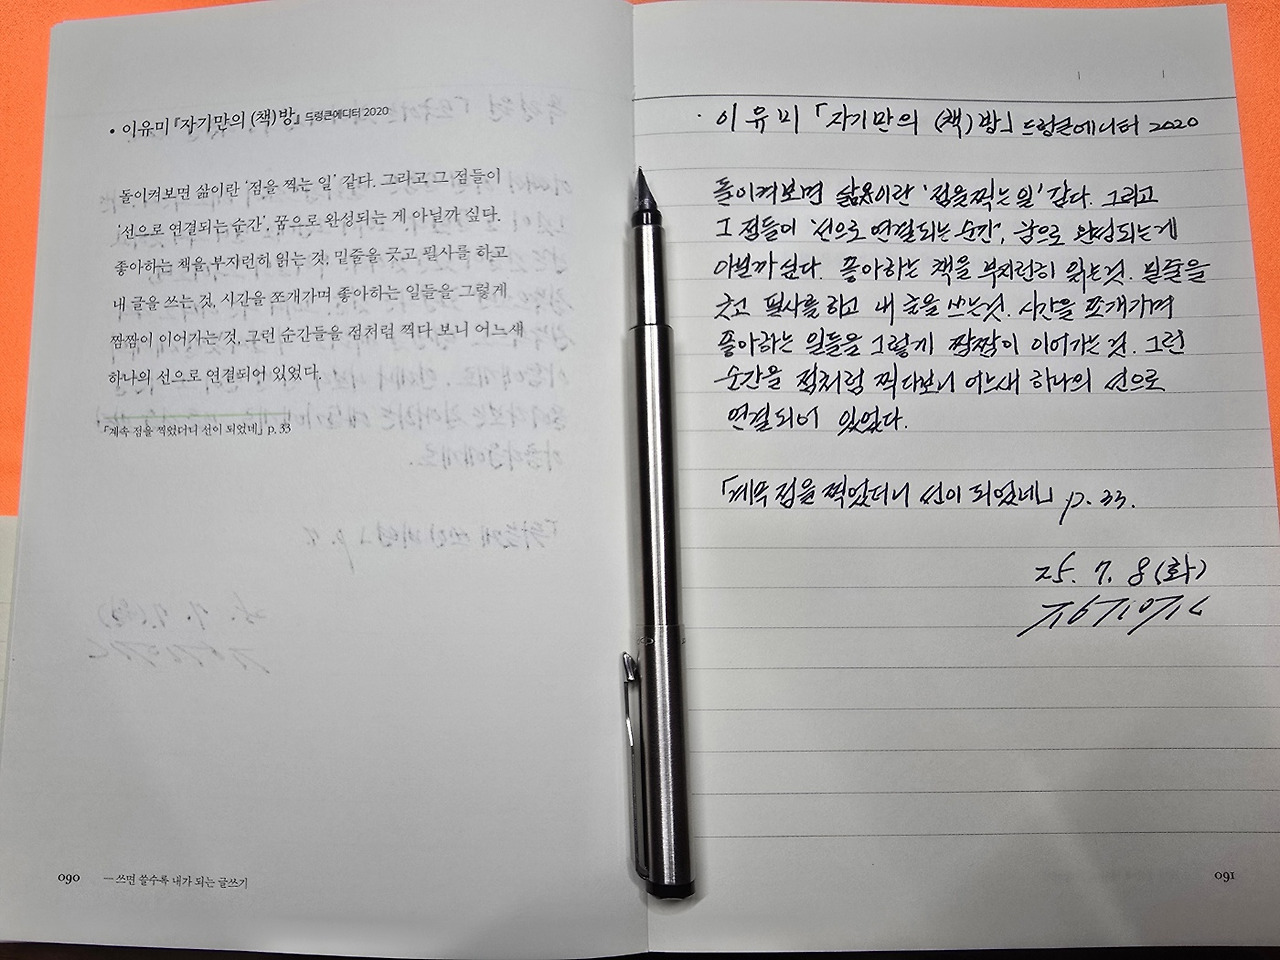 • 이유미 『자기만의 (책)방』 드렁큰에디터 2020
돌이켜보면 삶이란 ‘점을 찍는 일’ 같다. 그리고 그 점들이
‘선으로 연결되는 순간’, 꿈으로 완성되는 게 아닐까 싶다.
좋아하는 책을 부지런히 읽는 것, 밑줄을 긋고 필사를 하고
내 글을 쓰는 것, 시간을 쪼개가며 좋아하는 일들을 그렇게
짬짬이 이어가는 것, 그런 순간들을 점처럼 찍다 보니 어느새
하나의 선으로 연결되어 있었다.
「계속 점을 찍었더니 선이 되었네」 p. 33
090 — 쓰면 쓸수록 내가 되는 글쓰기
· 이유미 「자기만의 (책)방」 드렁큰에디터 2020
돌이켜보면 삶이란 ‘점을 찍는 일’ 같다. 그리고
그 점들이 ‘선으로 연결되는 순간’, 꿈으로 완성되는게
아닐까 싶다. 좋아하는 책을 부지런히 읽는것. 밑줄을
긋고 필사를 하고 내 글을 쓰는것. 시간을 쪼개가며
좋아하는 일들을 그렇게 짬짬이 이어가는 것. 그런
순간을 점처럼 찍다보니 어느새 하나의 선으로
연결되어 있었다.
「계속 점을 찍었더니 선이 되었네」 p. 33.
25. 7. 8 (화)
091